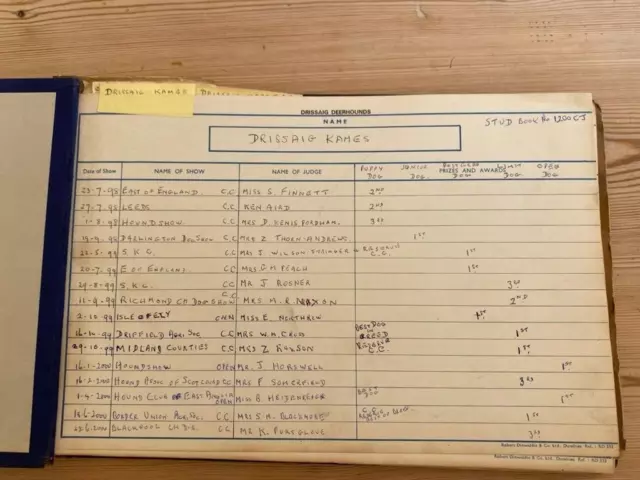 DRISSAIG KAMES
DRISSAIG DEERHOUNDS
NAME
STUD BOOK No 1200CJ
DRISSAIG KAMES
Date of Show NAME OF SHOW NAME OF JUDGE PUPPY DOG JUNIOR DOG POST GRAD DOG PRIZES AND AWARDS LIMIT DOG OPEN DOG
23-7-98 EAST OF ENGLAND. C.C MISS S. FINNETT 2ND
27-7-98 LEEDS C.C KEN AIRD 2ND
1-8-98 HOUNDSHOW. C.C MRS D. KENIS FORDHAM. 3RD
19-9-98 DARLINGTON DOG SHOW C.C MRS Z THORN-ANDREWS. 1ST
S.K.C. C.C MRS J WILSON RESERVE C.C. 1ST
20-7-99 E OF ENGLAND. C.C MRS G.M PEACH 1ST
29-8-99 S.K.C. C.C MR J ROSNER 3RD
11-9-99 RICHMOND CH DOG SHOW C.C MRS M.R. 2ND
2-10-99 ISLE OF ELY OPN MISS E. 1ST
16-10-99 DRIFFIELD AGRI. SOC C.C MRS W.M. CROSS BEST DOG IN BREED 1ST
29-10-99 MIDLAND COUNTIES C.C MRS Z RAWSON RESERVE C.C. 1ST
16-1-2000 HOUNDSHOW OPEN MR. J HORSWELL 1ST
16-2-2000 HOUND ASSOC OF SCOTLAND C.C MRS P SOMERFIELD 3RD
1-4-2000 HOUND CLUB OF EAST ANGLIA OPEN MISS B HEIDENREICH BEST DOG 1ST
18-6-2000 BORDER UNION AGR. C.C MRS S.A. BLACKMORE 1ST
23.6.2000 BLACKPOOL CH D.S. C.C MR K. PURSGLOVE 3RD